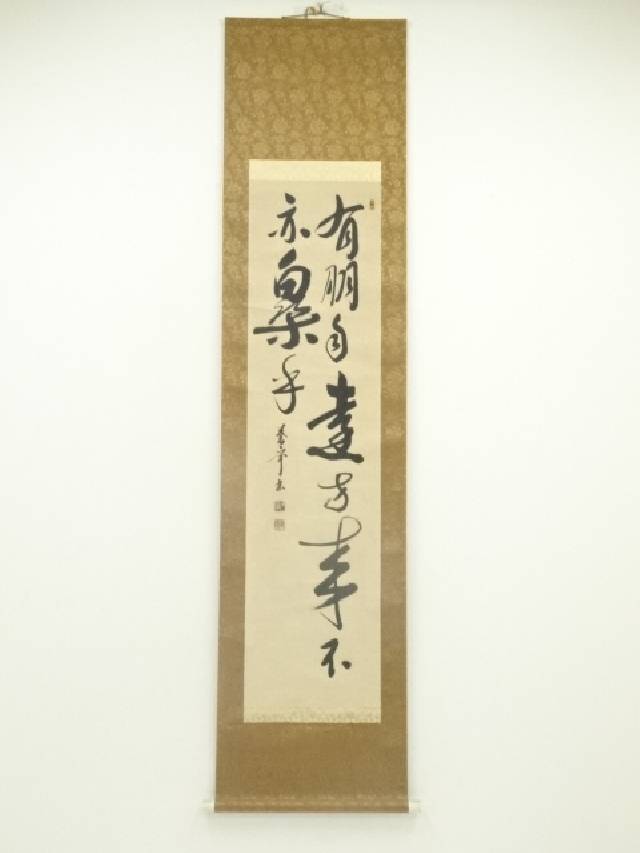 有朋自遠方来不
亦樂乎